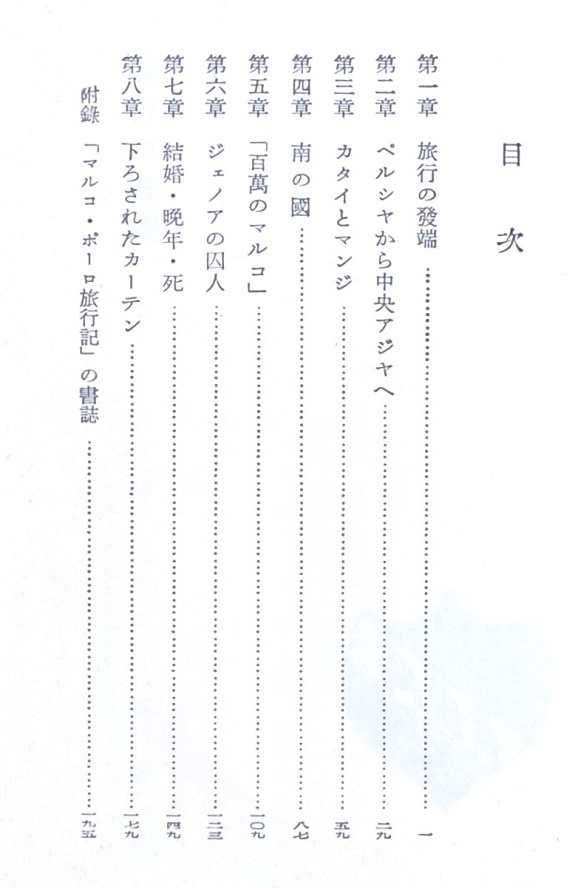 目次
第一章 旅行の發端……………………一
第二章 ペルシヤから中央アジヤへ……………………二九
第三章 カタイとマンジ……………………五九
第四章 南の國……………………八七
第五章 「百萬のマルコ」……………………一〇九
第六章 ジェノアの囚人……………………一二三
第七章 結婚・晩年・死……………………一四九
第八章 下ろされたカーテン……………………一七九
附錄 「マルコ・ポーロ旅行記」の書誌……………………一九五